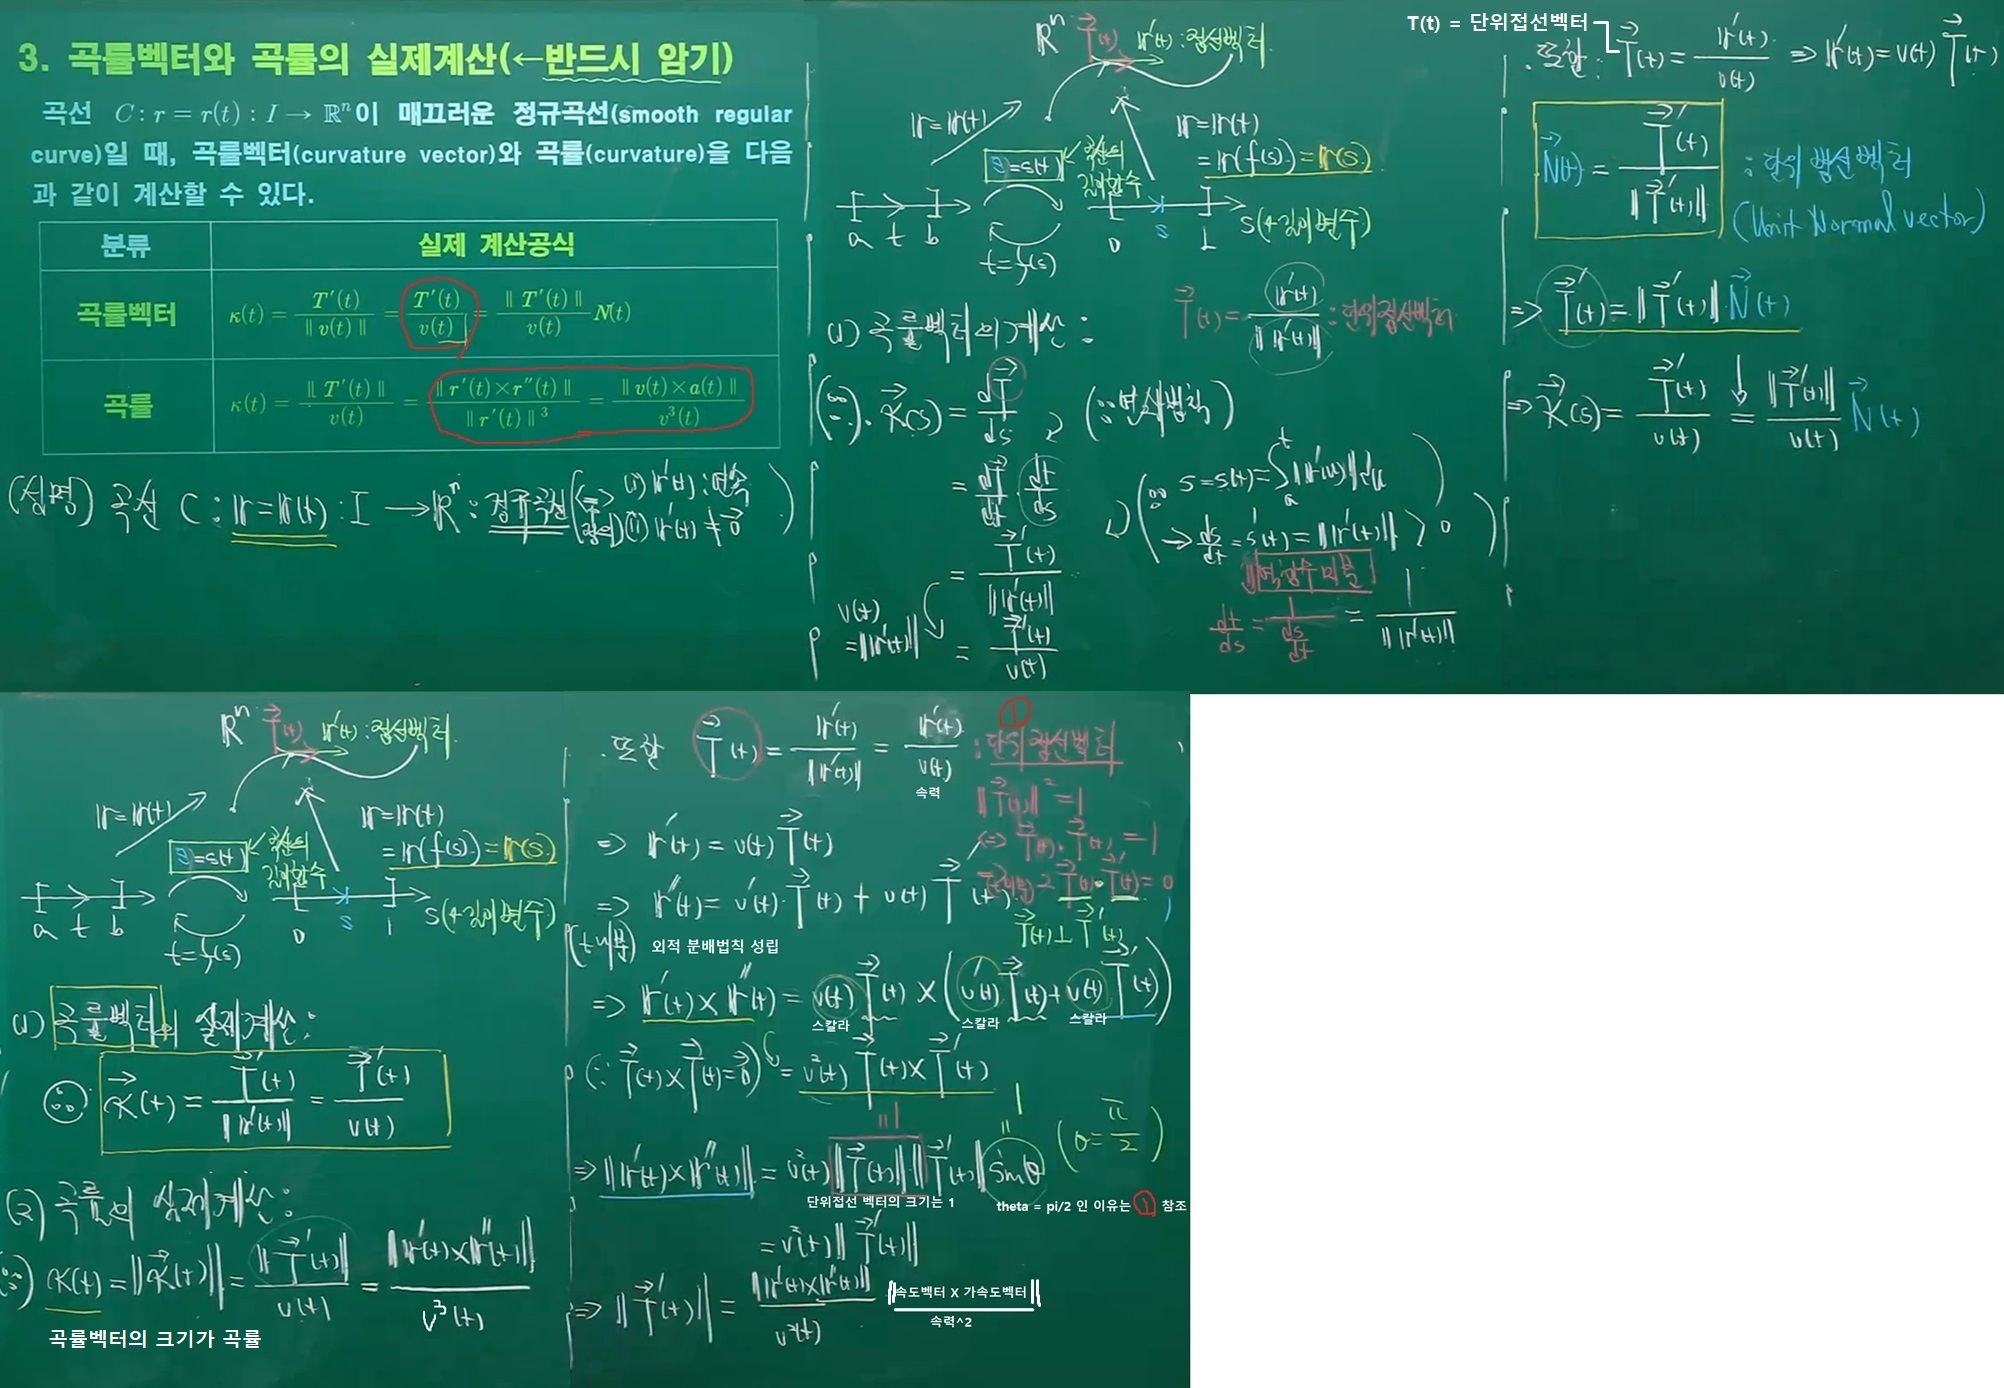 3. 곡률벡터와 곡률의 실제계산(←반드시 암기)
곡선 C : r = r(t) : I → ℝⁿ이 매끄러운 정규곡선(smooth regular
curve)일 때, 곡률벡터(curvature vector)와 곡률(curvature)을 다음
과 같이 계산할 수 있다.
분류 실제 계산공식
곡률벡터 κ(t) = T′(t) / ‖v(t)‖ = T′(t) / v(t) = ‖T′(t)‖ / v(t) N(t)
곡률 κ(t) = ‖T′(t)‖ / v(t) = ‖r′(t)×r″(t)‖ / ‖r′(t)‖³ = ‖v(t)×a(t)‖ / v³(t)
(설명) 곡선 C : r = r(t) : I → ℝⁿ : 정규곡선 (⇔ 정의 (i) r′(t) : 연속 (ii) r′(t) ≠ 0⃗)
ℝⁿ T⃗(t) r′(t) : 접선벡터
r = r(t)
r = r(t)
= r(f(s)) = r(s)
s = s(t) ← 곡선의 길이함수
a t b 0 s L s(←길이변수)
t = f(s)
T⃗(t) = r′(t) / ‖r′(t)‖ : 단위접선벡터
(1) 곡률벡터의 계산 :
(∵) · κ⃗(s) = dT⃗/ds (∵ 연쇄법칙)
= dT⃗/dt · dt/ds
= T⃗′(t) / ‖r′(t)‖
v(t) = ‖r′(t)‖
= T⃗′(t) / v(t)
(∵ s = s(t) = ∫ₐᵗ ‖r′(u)‖ du
→ ds/dt = s′(t) = ‖r′(t)‖ > 0)
⇓ 역함수 미분
dt/ds = 1 / (ds/dt) = 1 / ‖r′(t)‖
T(t) = 단위접선벡터
· 또한 : T⃗(t) = r′(t) / v(t) ⇒ r′(t) = v(t) T⃗(t)
N⃗(t) = T⃗′(t) / ‖T⃗′(t)‖ : 단위법선벡터
(Unit Normal vector)
⇒ T⃗′(t) = ‖T⃗′(t)‖ N⃗(t)
⇒ κ⃗(s) = T⃗′(t) / v(t) = ‖T⃗′(t)‖ / v(t) N⃗(t)
ℝⁿ T⃗(t) r′(t) : 접선벡터
r = r(t)
r = r(t)
= r(f(s)) = r(s)
s = s(t) ← 곡선의 길이함수
a t b 0 s L s(←길이변수)
t = f(s)
(1) 곡률벡터의 실제계산 :
∴ κ⃗(t) = T⃗′(t) / ‖r′(t)‖ = T⃗′(t) / v(t)
(2) 곡률의 실제계산 :
(∵) κ(t) = ‖κ⃗(t)‖ = ‖T⃗′(t)‖ / v(t) = ‖r′(t)×r″(t)‖ / v³(t)
곡률벡터의 크기가 곡률
· 또한 T⃗(t) = r′(t) / ‖r′(t)‖ = r′(t) / v(t) : 단위접선벡터 ①
속력
‖T⃗(t)‖² = 1
⇔ T⃗(t)·T⃗(t) = 1
2T⃗(t)·T⃗′(t) = 0
T⃗(t) ⊥ T⃗′(t)
⇒ r′(t) = v(t) T⃗(t)
⇒ r″(t) = v′(t)·T⃗(t) + v(t) T⃗′(t)
(t 미분)
외적 분배법칙 성립
⇒ r′(t) × r″(t) = v(t) T⃗(t) × (v′(t) T⃗(t) + v(t) T⃗′(t))
스칼라 스칼라 스칼라
(∵ T⃗(t)×T⃗(t) = 0⃗) = v²(t) T⃗(t)×T⃗′(t)
⇒ ‖r′(t)×r″(t)‖ = v²(t) ‖T⃗(t)‖ ‖T⃗′(t)‖ sinθ (θ = π/2)
=1 =1
단위접선 벡터의 크기는 1
theta = pi/2 인 이유는 ① 참조
= v²(t) ‖T⃗′(t)‖
⇒ ‖T⃗′(t)‖ = ‖r′(t)×r″(t)‖ / v²(t)
‖속도벡터 X 가속도벡터‖
속력^2